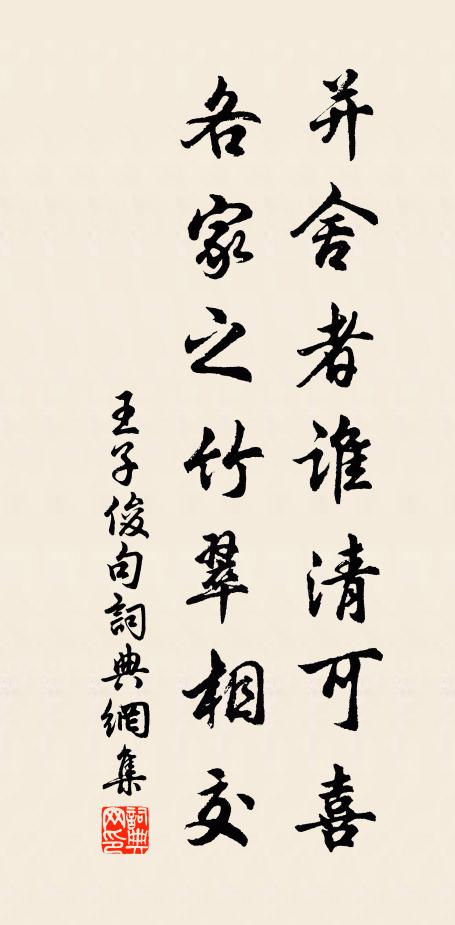 并舍者谁清可喜
各家之竹翠相交
王子俊句詞典網集
詞典
网印